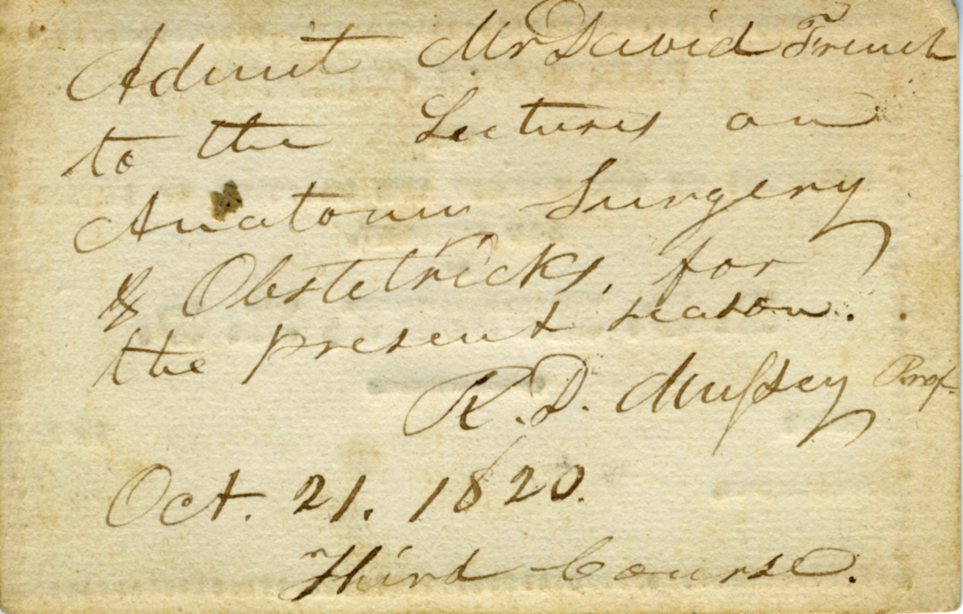 Admit Mr David French
to the Lectures on
Anatomy Surgery
& Obstetricks, for
the present season.
R. D. Muſsey Prof.
Oct. 21. 1820.
Third Course.